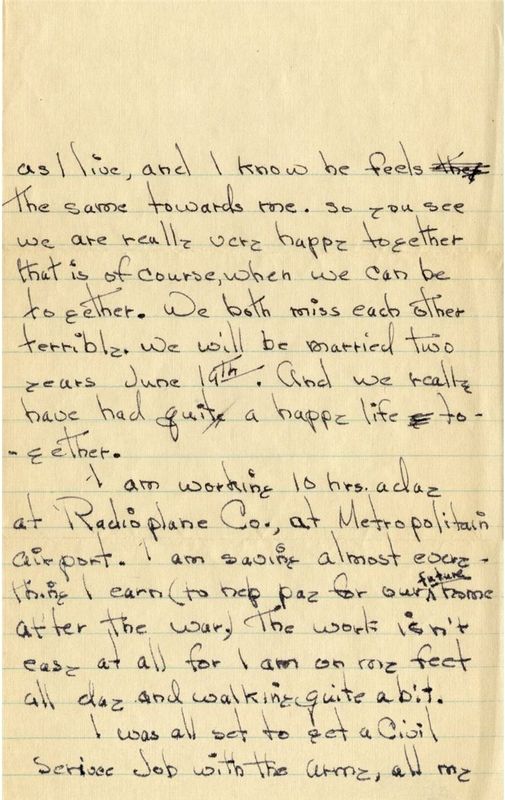 as I live, and I know he feels the
the same towards me. so you see
we are really very happy together
that is of course, when we can be
together. We both miss each other
terribly. We will be married two
years June 19th. And we really
have had quite a happy life to-
-gether.
I am working 10 hrs. a day
at Radioplane Co., at Metropolitain
airport. I am saving almost every-
thing I earn (to help pay for our future home
after the war.) The work isn't
easy at all for I am on my feet
all day and walking quite a bit.
I was all set to get a Civil
Serivce Job with the army, all my